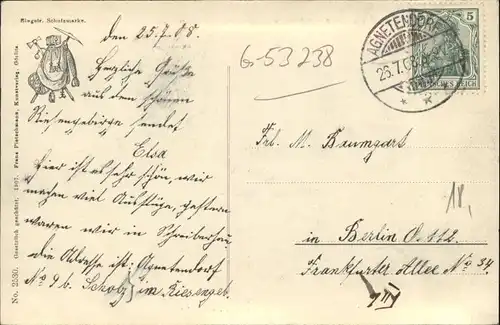 Eingetr. Schutzmarke.
No. 2230. Gesetzlich geschützt. 1907. Franz Pietschmann, Kunstverlag, Görlitz.
den 25.7.08.
Herzliche Grüße
aus dem schönen
Riesengebirge sendet
Elsa
Hier ist es sehr schön, wir
machen viel Ausflüge, gestern
waren wir in Schreiberhau
die Adresse ist: Agnetendorf
No 9 b. Scholz im Riesengeb.
G-53238
AGNETENDORF
26.7.08
5
DEUTSCHES REICH
Frl. M. Baumgart
18,
in Berlin O. 112
Frankfurter Allee No 34.